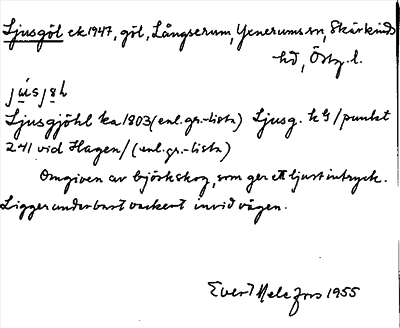 Ljusgöl ek 1947, göl, Långserum, Yxnerums sn, Skärkinds
hd, Östg. l.
júsjəh
Ljusgjöhl ka 1803 (enl. gr.-lista) Ljusg. k G / punkt
241 vid Hagen / (enl. gr.-lista)
Omgiven av björkskog, som ger ett ljust intryck.
Ligger underbart vackert invid vägen.
Evert Melefors 1955